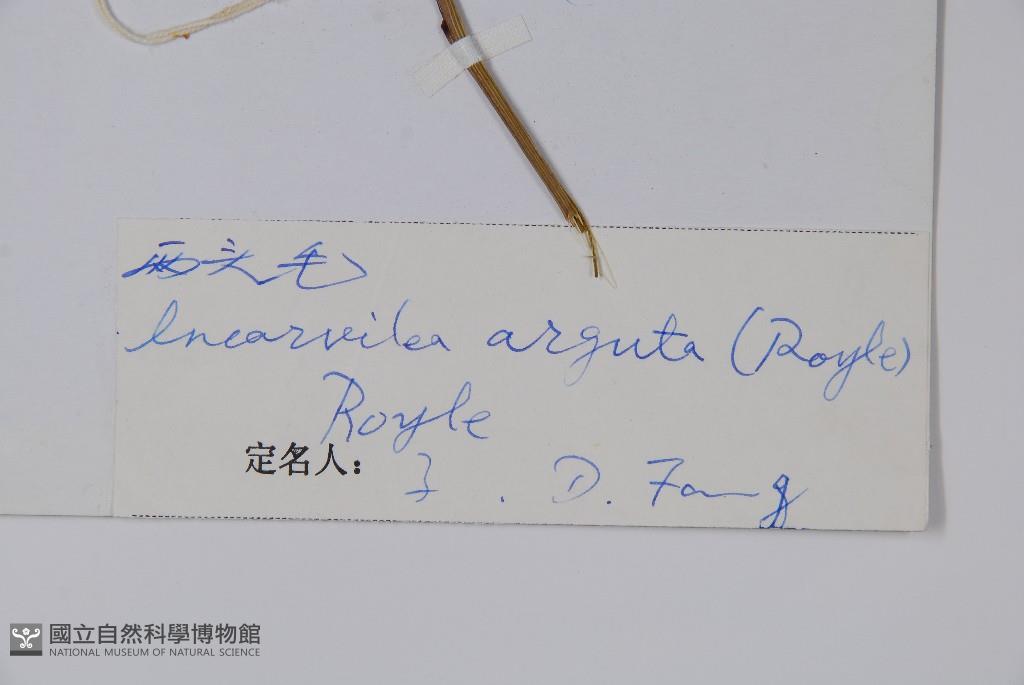 两头毛
Incarvilea arguta (Royle)
Royle
定名人： Z. D. Fang
國立自然科學博物館
NATIONAL MUSEUM OF NATURAL SCIENCE